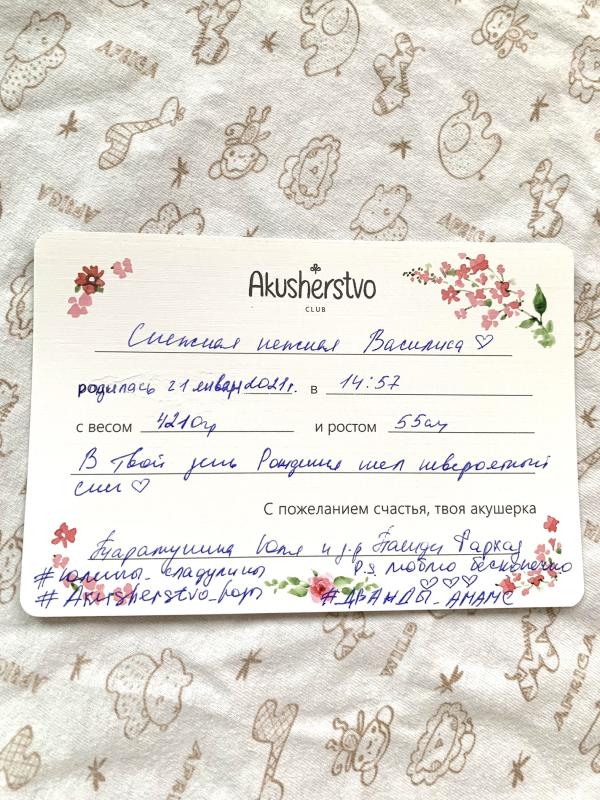 Akusherstvo
CLUB
Снежная нежная Василиса ♡
родилась 21 января 2021г. в 14:57
с весом 4210гр и ростом 55см
В твой день Рождения шел невероятный
снег ♡
С пожеланием счастья, твоя акушерка
Юля и д-р Фархад
#юлины_сладулины p.s люблю бесконечно
♡♡♡
#Akusherstvo_
AFRICA
AFRICA
AFRICA
AFRICA
WILD
AFRICA